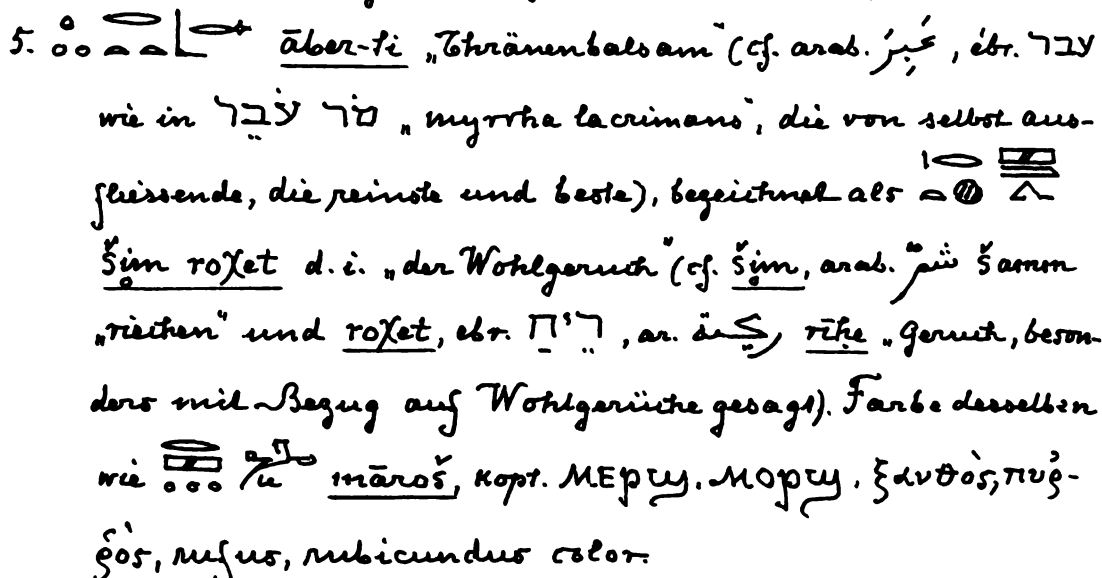 5. āber-ti „Thränenbalsam" (cf. arab. عَبِرَ, ebr. עבר
wie in מֹר עֹבֵר „myrrha lacrimans", die von selbst aus-
fliessende, die reinste und beste), bezeichnet als
ši̥m roχet d. i. „der Wohlgeruch" (cf. ši̥m, arab. شمّ šamm
„riechen" und roχet, ebr. רֵיחַ, ar. ريحة rīḥe „Geruch, beson-
ders mit Bezug auf Wohlgerüche gesagt). Farbe desselben
wie māroš, kopt. ⲙⲉⲣϣ, ⲙⲟⲣϣ, ξανθὸς, πυῤ-
ῥὸς, rufus, rubicundus color.